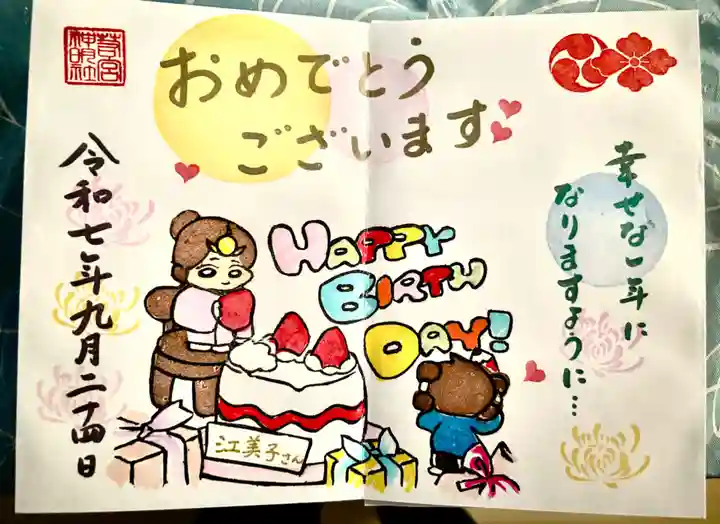 おめでとう
ございます
幸せな一年に
なりますように…
HAPPY
BIRTH
DAY!
江美子さん
令和七年九月二十四日
神明社